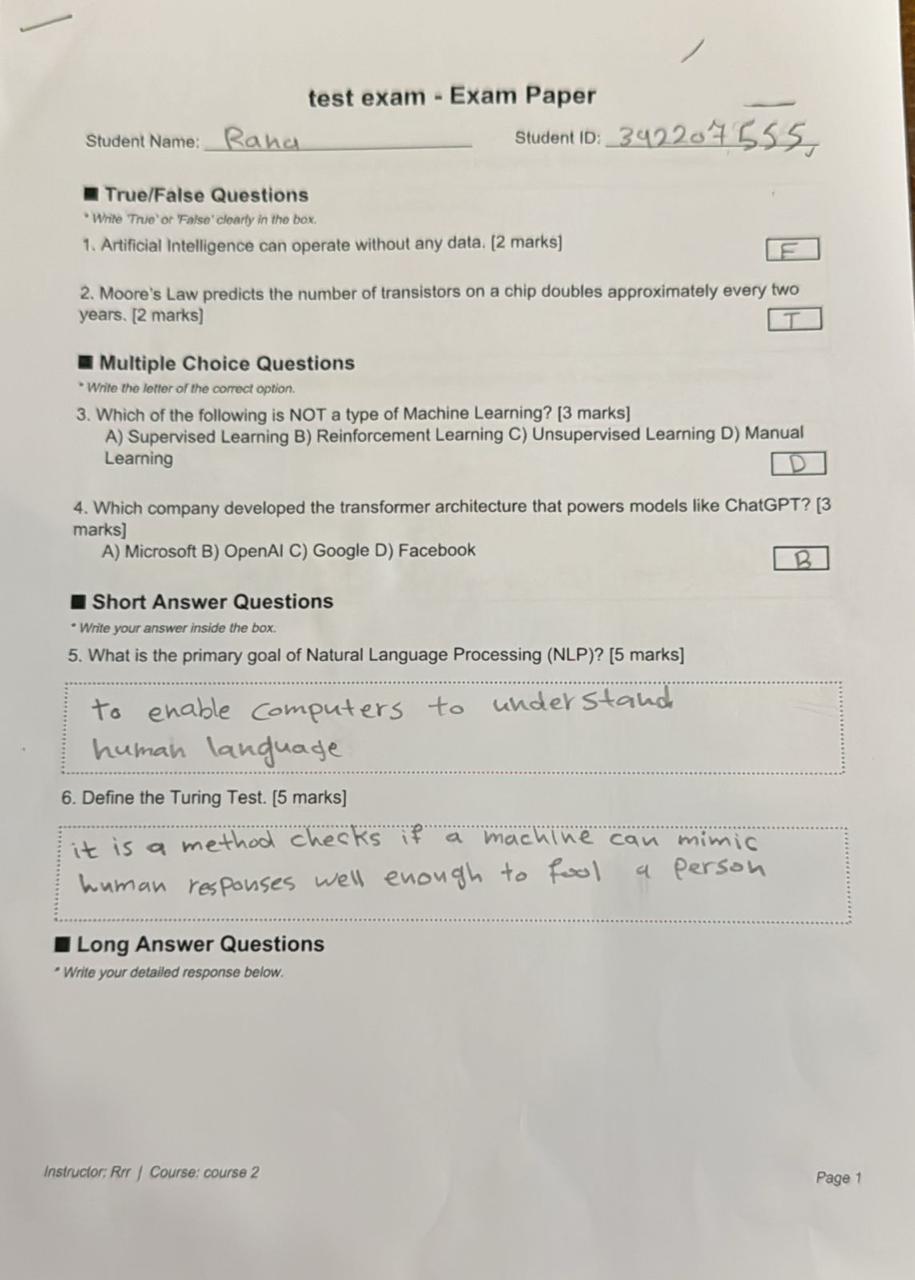 test exam - Exam Paper
Student Name: Rana Student ID: 392207555
■ True/False Questions
* Write 'True' or 'False' clearly in the box.
1. Artificial Intelligence can operate without any data. [2 marks]
F
2. Moore's Law predicts the number of transistors on a chip doubles approximately every two
years. [2 marks]
T
■ Multiple Choice Questions
* Write the letter of the correct option.
3. Which of the following is NOT a type of Machine Learning? [3 marks]
A) Supervised Learning B) Reinforcement Learning C) Unsupervised Learning D) Manual
Learning
D
4. Which company developed the transformer architecture that powers models like ChatGPT? [3
marks]
A) Microsoft B) OpenAI C) Google D) Facebook
B
■ Short Answer Questions
* Write your answer inside the box.
5. What is the primary goal of Natural Language Processing (NLP)? [5 marks]
to enable computers to understand
human language
6. Define the Turing Test. [5 marks]
it is a method checks if a machine can mimic
human responses well enough to fool a person
■ Long Answer Questions
* Write your detailed response below.
Instructor: Rrr | Course: course 2
Page 1